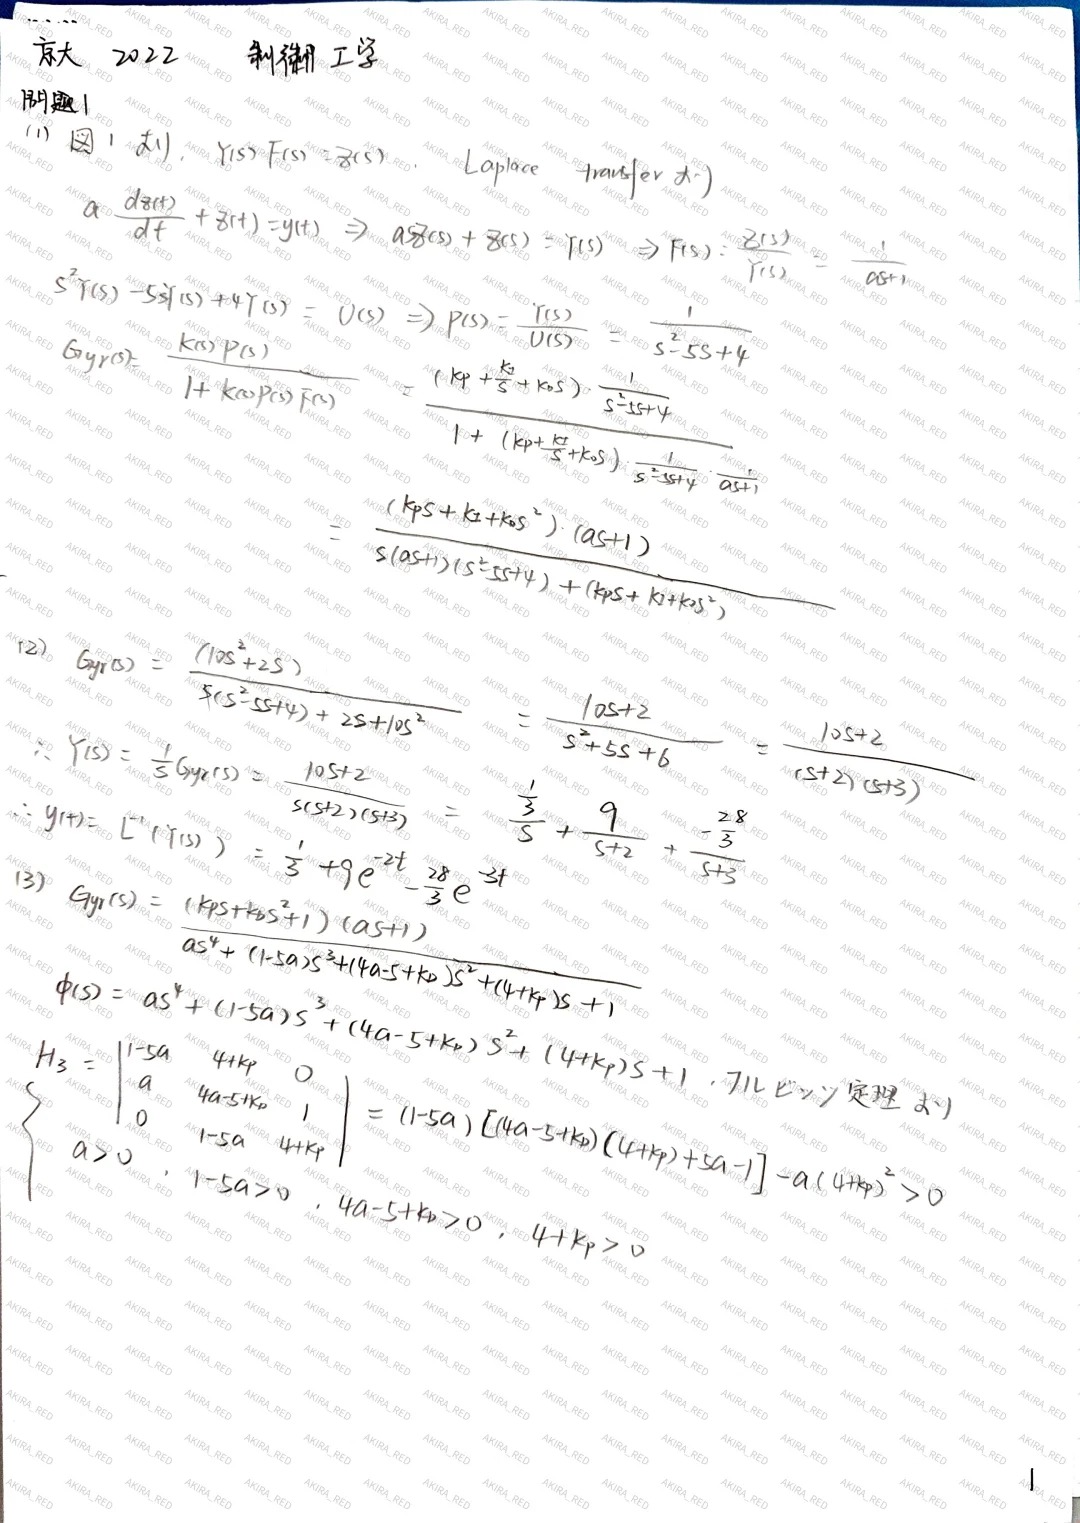 京大 2022 制御工学
問題1
(1) 図1より, Y(s)F(s)=Z(s). Laplace transfer より
a dz(t)/dt + z(t) = y(t) ⇒ asZ(s) + Z(s) = Y(s) ⇒ F(s) = Z(s)/Y(s) = 1/(as+1)
s²Y(s) - 5sY(s) + 4Y(s) = U(s) ⇒ P(s) = Y(s)/U(s) = 1/(s²-5s+4)
Gyr(s) = K(s)P(s)/(1+K(s)P(s)F(s)) = (Kp + KI/s + KDs)·1/(s²-5s+4) / (1 + (Kp + KI/s + KDs)·1/(s²-5s+4)·1/(as+1))
= (Kps + KI + KDs²)·(as+1) / (s(as+1)(s²-5s+4) + (Kps + KI + KDs²))
(2) Gyr(s) = (10s²+2s) / (s(s²-5s+4) + 2s+10s²) = (10s+2)/(s²+5s+6) = (10s+2)/((s+2)(s+3))
∴ Y(s) = 1/s Gyr(s) = (10s+2)/(s(s+2)(s+3)) = (1/3)/s + 9/(s+2) + (-28/3)/(s+3)
∴ y(t) = L⁻¹(Y(s)) = 1/3 + 9e^(-2t) - 28/3 e^(-3t)
(3) Gyr(s) = (Kps+KDs²+1)(as+1) / (as⁴ + (1-5a)s³ + (4a-5+KD)s² + (4+Kp)s + 1)
φ(s) = as⁴ + (1-5a)s³ + (4a-5+KD)s² + (4+Kp)s + 1, フルビッツ定理より
H₃ = |1-5a 4+Kp 0
a 4a-5+KD 1
0 1-5a 4+Kp| = (1-5a)[(4a-5+KD)(4+Kp)+5a-1] - a(4+Kp)² > 0
a>0, 1-5a>0, 4a-5+KD>0, 4+Kp>0
1